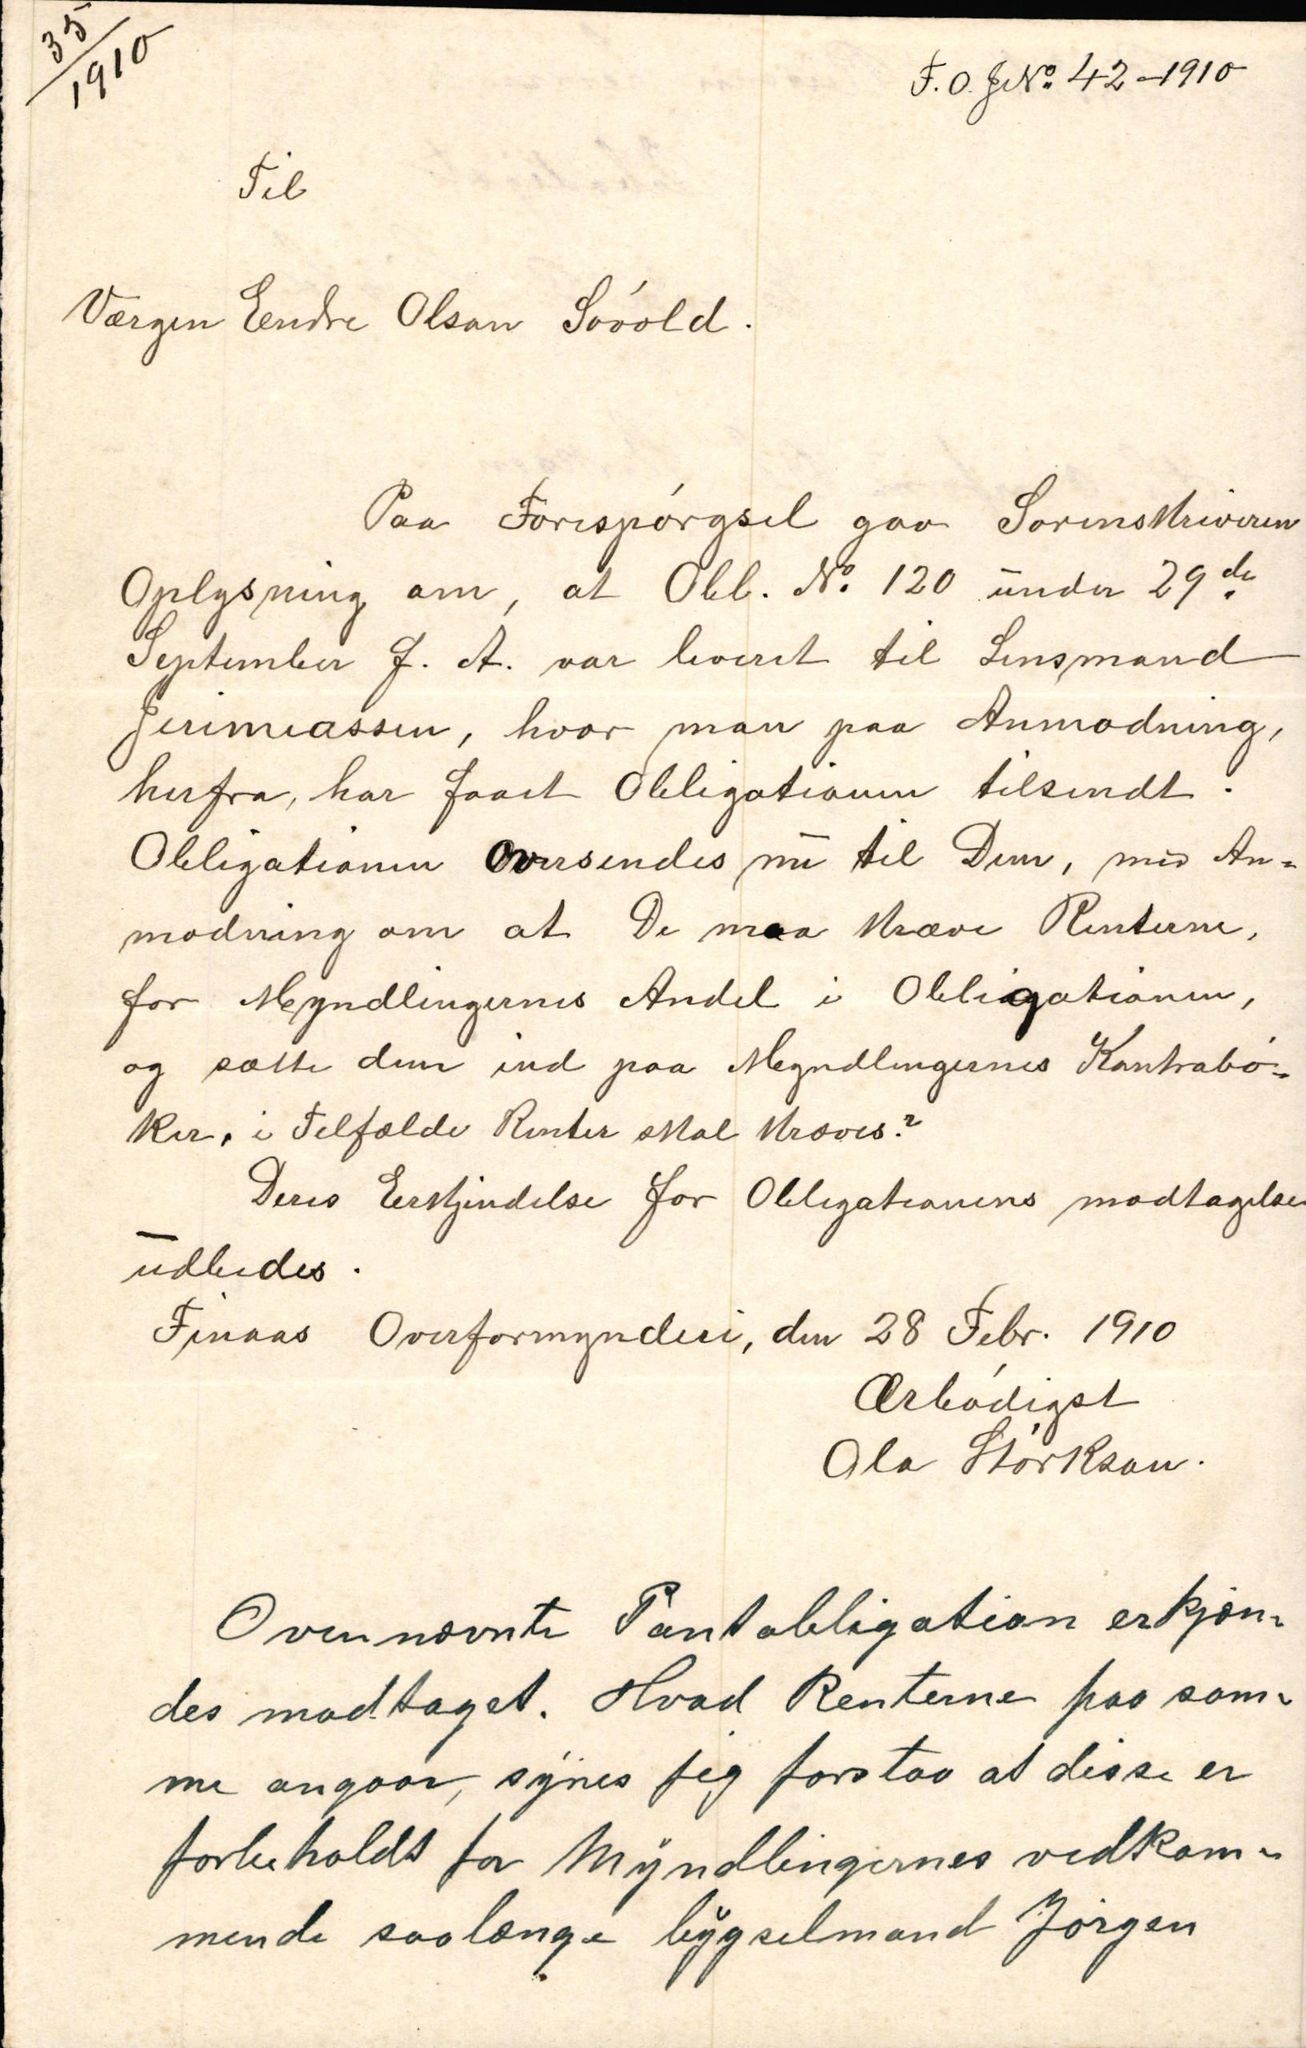 35
1910
F. O. J No. 42-1910
Til
Værgen Eendre Olson Sövold.
Paa Forespörgsel gav Sorenskriveren
Oplysning om, at Obl. No. 120 under 29de
September f. A. var leveret til Lensmand
Jerimeassen, hvor man paa Anmodning,
herfra, har faaet Obligationen tilsendt.
Obligationen oversendes nu til Dem, med An=
modning om at De maa kræve Renterne,
for Myndlingernes Andel i Obligationen,
og sætte dem ind paa Myndlingernes Kontrabö=
ker, i Tilfælde Renter skal kræves.?
Deres Erkjendelse for Obligationens modtagelse
udbedes.
Finaas Overformynderi, den 28 Febr. 1910
Ærbödigst
Ola Störkson.
Ovennævnte Pantobligation erkjæn=
des modtaget. Hvad Renterne paa sam=
me angaar, synes jeg forstaa at disse er
forbeholdt for Myndlingernes vedkom=
mende saalænge bygselmand Jörgen